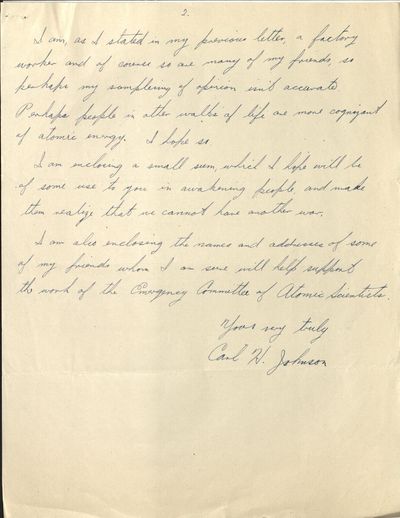 2.
I am, as I stated in my previous letter, a factory
worker and of course so are many of my friends, so
perhaps my sampling of opinion isn't accurate.
Perhaps people in other walks of life are more cognizant
of atomic energy. I hope so.
I am enclosing a small sum, which I hope will be
of some use to you in awakening people and make
them realize that we cannot have another war.
I am also enclosing the names and addresses of some
of my friends whom I am sure will help support
the work of the Emergency Committee of Atomic Scientists.
Yours very truly
Carl H. Johnson